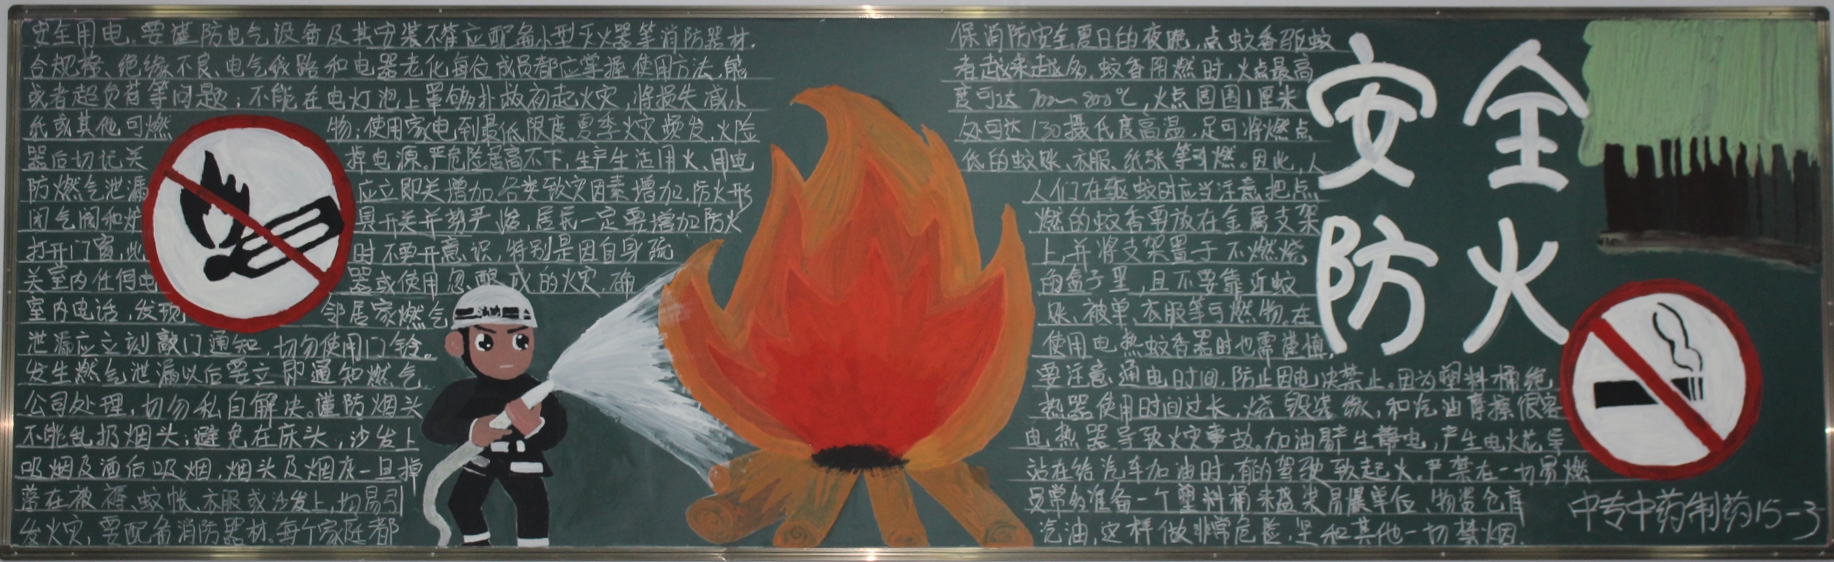 安全用电,要谨防电气设备及其安装不符应配备小型灭火器等消防器材.
合规程、绝缘不良、电气线路和电器老化每位成员都应掌握使用方法,能
或者超负荷等问题;不能在电灯泡上罩 初起火灾,将损失减小
纸或其他可燃 物;使用家电到最低限度.夏季火灾频发,火险
器后切记关 掉电源.严危险居高不下,生产生活用火、用电
防燃气泄漏 应立即关增加.各类致灾因素增加.防火形
闭气阀和炉 具开关并势严峻,居民一定要增加防火
打开门窗,此 时不要开意识,特别是因自身疏
关室内任何电 器或使用忽酿成的火灾.确
室内电话,发现 邻居家燃气
泄漏应立刻敲门通知,切勿使用门铃。
发生燃气泄漏以后要立即通知燃气
公司处理,切勿私自解决。谨防烟头
不能乱扔烟头;避免在床头,沙发上
吸烟及酒后吸烟,烟头及烟灰一旦掉
落在被褥、蚊帐、衣服或沙发上,切易引
发火灾,要配备消防器材.每个家庭都
保消防安全.夏日的夜晚,点蚊香驱蚊
者越来越多,蚊香用燃时,火点最高
度可达700~800℃,火点周围1厘米
处可达130摄氏度高温,足可将燃点
低的蚊帐、衣服、纸张等引燃。因此,人
人们在驱蚊时应当注意把点
燃的蚊香要放在金属支架
上,并将支架置于不燃烧
的盒子里,且不要靠近蚊
帐、被单、衣服等可燃物.在
使用电热蚊香器时也需谨慎,
要注意通电时间,防止因电决禁止。因为塑料桶绝
热器使用时间过长,烧毁 缘,和汽油摩擦很容
电热器导致火灾事故.加油易产生静电,产生电火花,导
站在给汽车加油时,有的驾驶 致起火.严禁在一切易燃
员常务准备一个塑料桶来盛 易爆单位、物资仓库
汽油,这样做非常危险,坚 和其他一切禁烟.
安全
防火
中专中药制药15-3